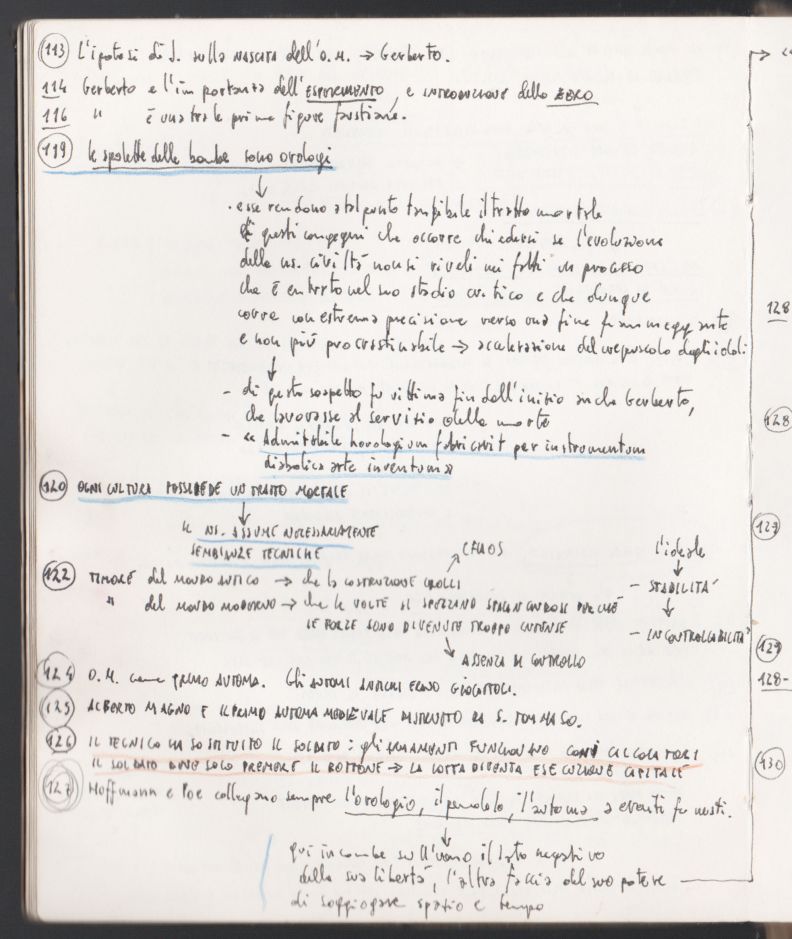 113 L'ipotesi di J. sulla NASCITA dell'O.M. → Gerberto.
114 Gerberto e l'importanza dell'ESPERIMENTO, e INTRODUZIONE dello ZERO
116 " è una tra le prime figure faustiane.
119 le spolette delle bombe sono orologi
↓
· esse rendono a tal punto tangibile il tratto mortale
di questi congegni che occorre chiedersi se l'evoluzione
della ns. civiltà non si riveli nei fatti un processo
che è entrato nel suo stadio critico e che dunque
corre con estrema precisione verso una fine fiammeggiante
e non più procrastinabile → accelerazione del crepuscolo degli idoli
↓
- di questo sospetto fu vittima fin dall'inizio anche Gerberto,
che lavorasse al servizio della morte
- « Admirabile horologium fabricavit per instrumentum
diabolica arte inventum»
120 OGNI CULTURA POSSIEDE UN TRATTO MORTALE
↓
IL NS. ASSUME NECESSARIAMENTE
SEMBIANZE TECNICHE
CHAOS
l'ideale
↓
122 TIMORE del MONDO ANTICO → che la COSTRUZIONE CROLLI
- STABILITÀ
" del MONDO MODERNO → che le VOLTE SI SPEZZINO SPALANCANDOSI PERCHÉ
LE FORZE SONO DIVENUTE TROPPO INTENSE
↓
- INCONTROLLABILITÀ
ASSENZA DI CONTROLLO
124 O.M. come PRIMO AUTOMA. Gli AUTOMI ANTICHI ERANO GIOCATTOLI.
125 ALBERTO MAGNO E IL PRIMO AUTOMA MEDIEVALE DISTRUTTO DA S. TOMMASO.
126 IL TECNICO HA SOSTITUITO IL SOLDATO: gli ARMAMENTI FUNZIONANO COME CALCOLATORI
IL SOLDATO DEVE SOLO PREMERE IL BOTTONE → LA LOTTA DIVENTA ESECUZIONE CAPITALE
127 Hoffmann e Poe collegano sempre l'orologio, il pendolo, l'automa a eventi funesti.
↓
qui incombe sull'uomo il lato negativo
della sua libertà, l'altra faccia del suo potere
di soggiogare spazio e tempo
128
128
127
129
128-
130